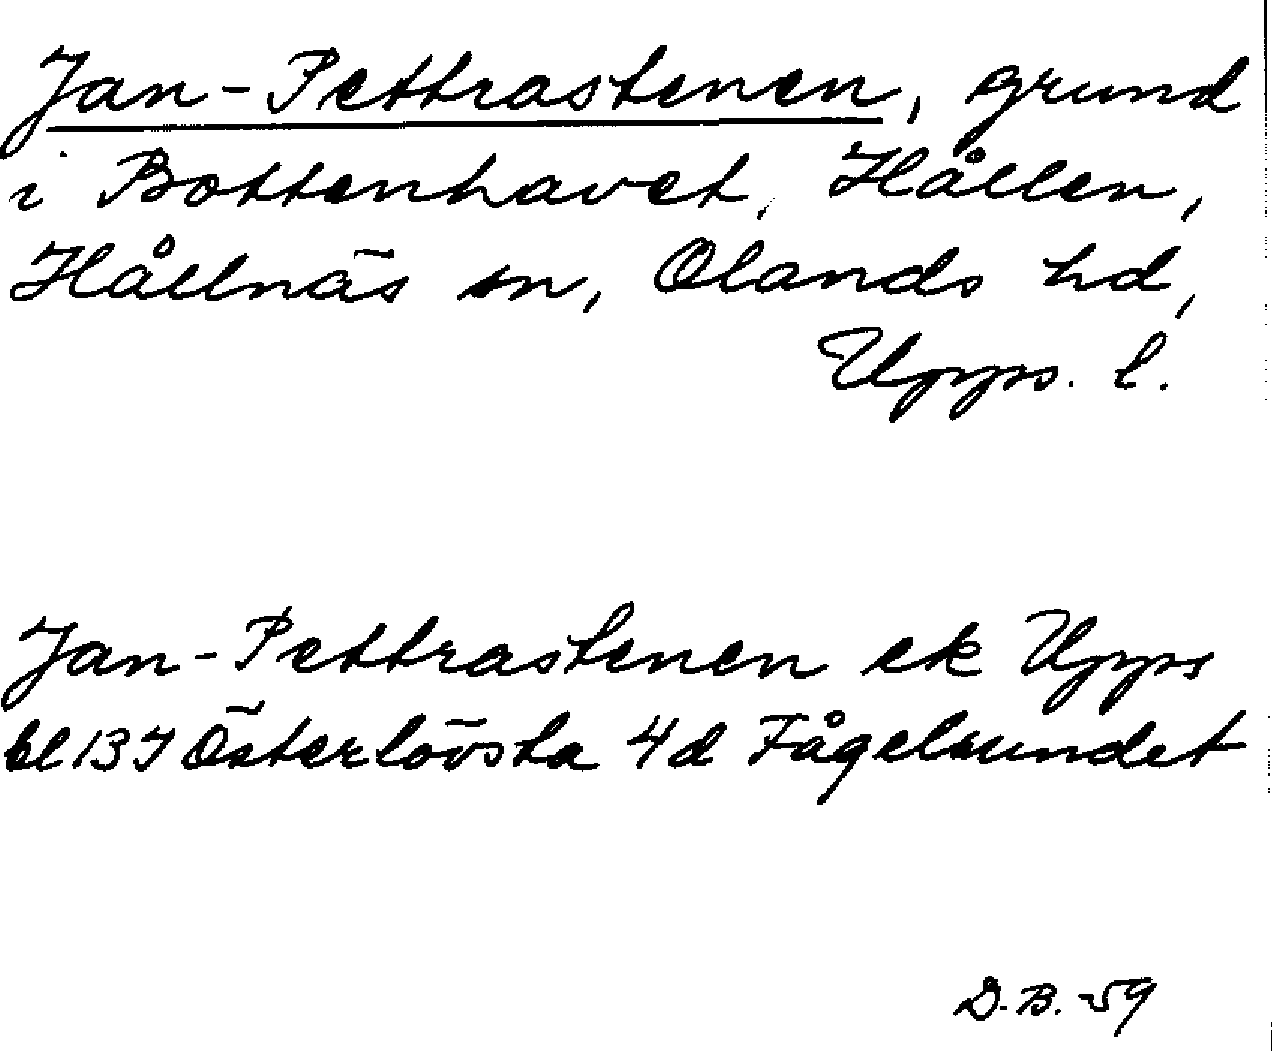 Jan-Pettrastenen, grund
i Bottenhavet, Hållen,
Hållnäs sn, Olands hd,
Upps. l.
Jan-Pettrastenen ek Upps
bl 137 Österlövsta 4d Fågelsundet
D.B. -59